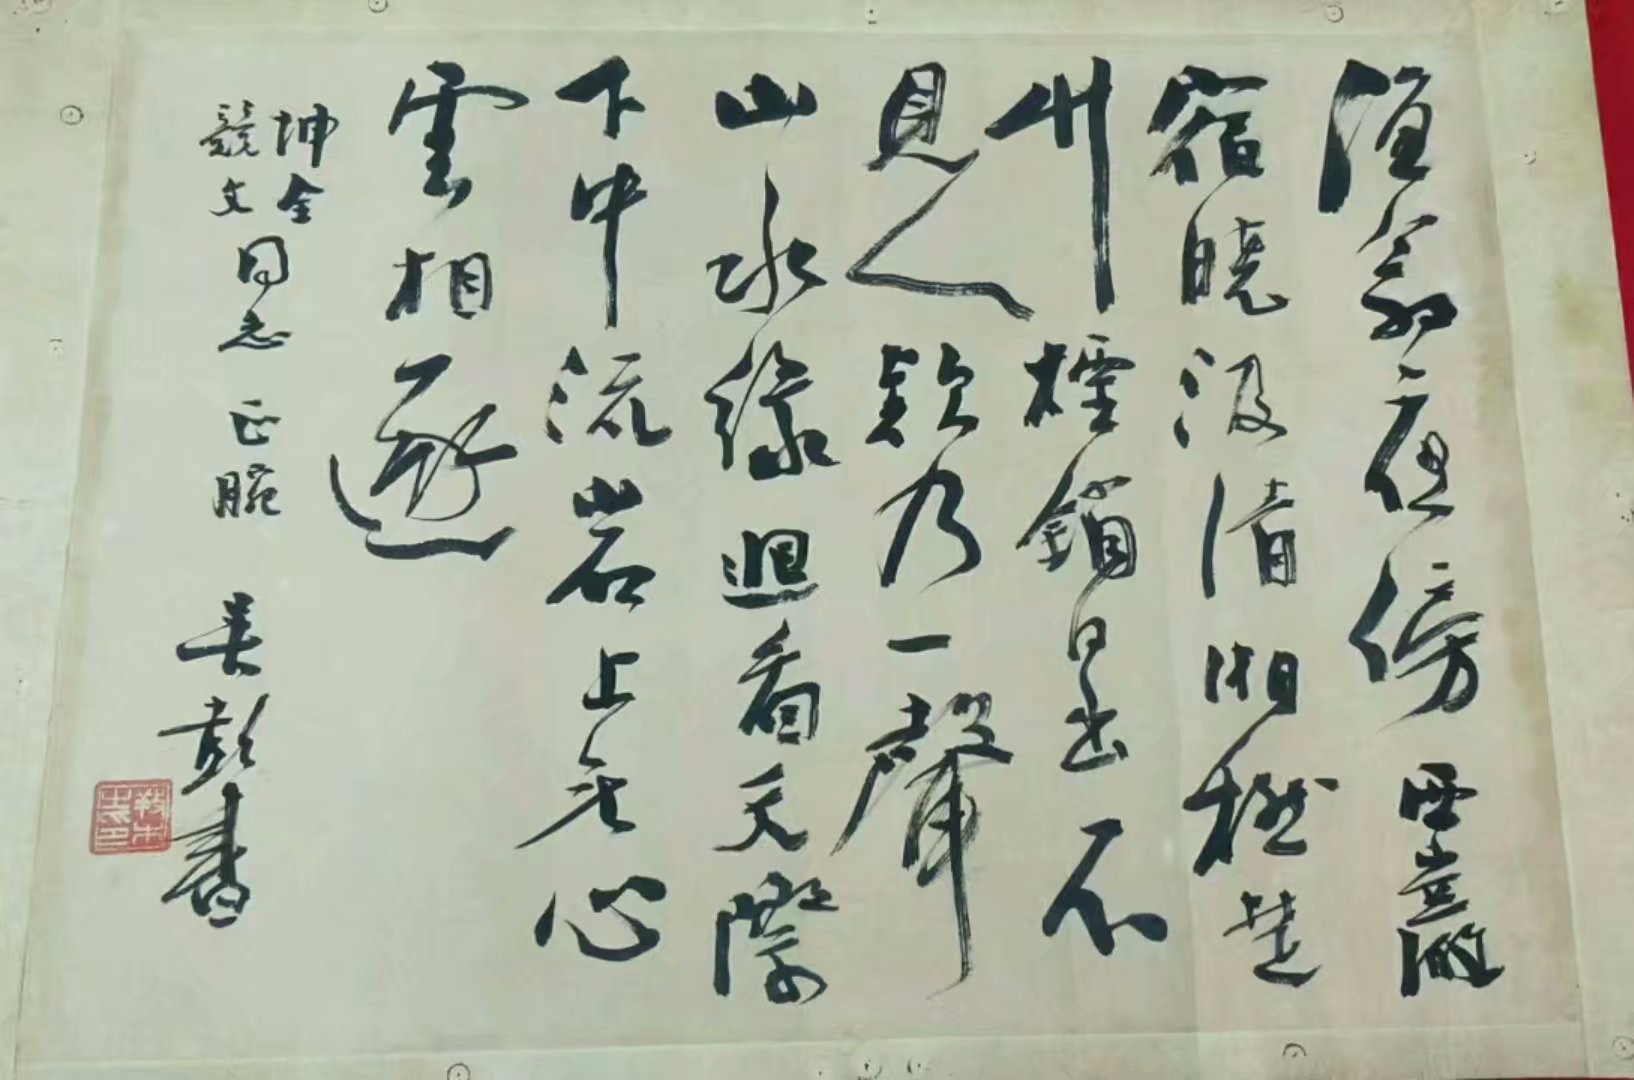 漁翁夜傍西巖
宿曉汲清湘燃楚
竹煙銷日出不
見人欸乃一聲
山水緑迴看天際
下中流岩上无心
雲相逐
坤全
競文同志正腕
吴彭書